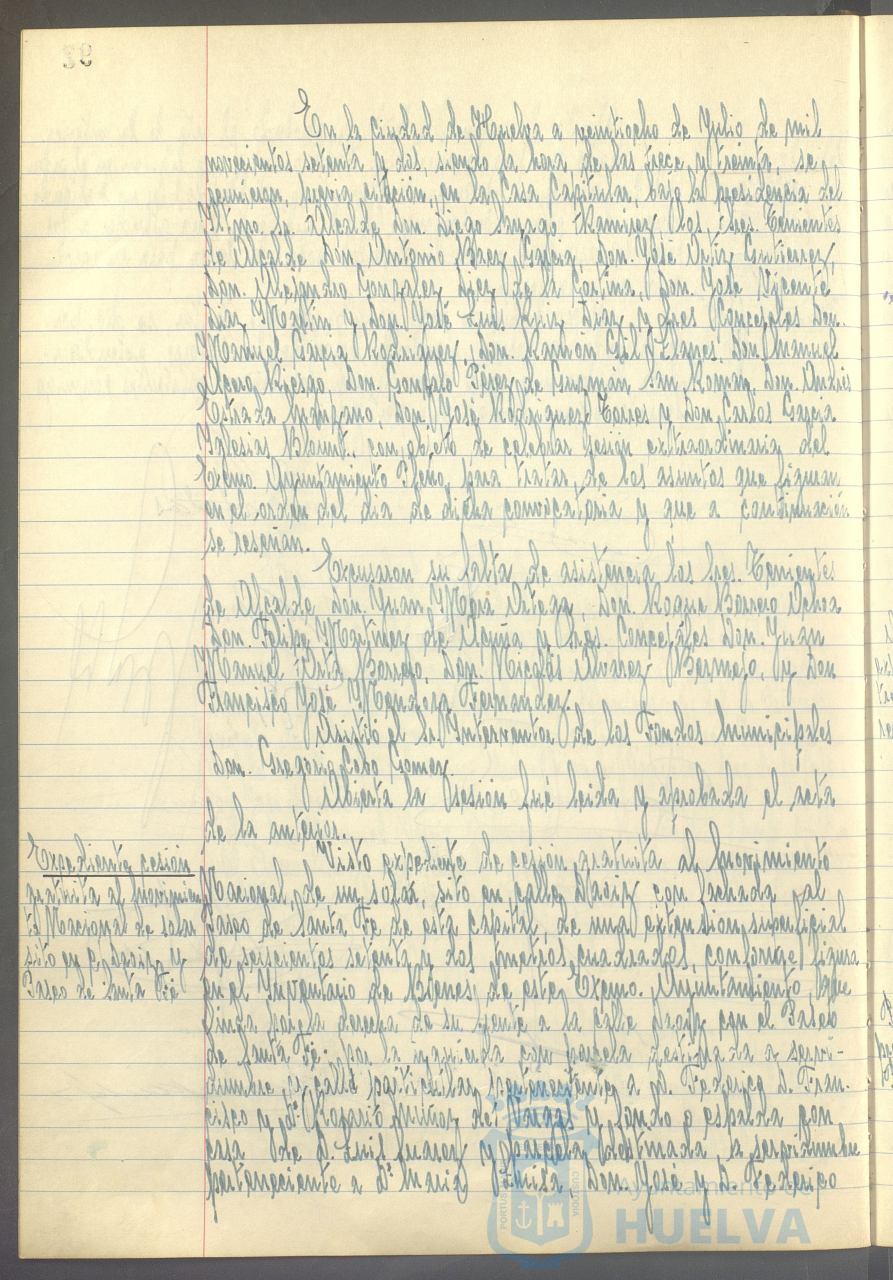 En la ciudad de Huelva a veintiocho de Julio de mil
novecientos setenta y dos, siendo la hora de las trece y treinta, se
reunieron, previa citación, en la Casa Capitular, bajo la presidencia del
Iltmo. Sr. Alcalde Don. Diego Sayago Ramirez los Sres. Tenientes
de Alcalde Don. Antonio Baez Garcia, Don. José Ortiz Gutierrez,
Don. Alejandro Gonzalez Diez de la Cortina, Don. José Vicente
Diaz Martin y Don. José Luis Ruiz Diaz, y Sres Concejales Don.
Manuel Garcia Rodriguez, Don. Ramón Gil Llanes, Don Manuel
Riesgo, Don. Gonzalo Pérez de Guzmán San Román, Don. Andrés
Estrada, Don. José Rodriguez Torres y Don. Carlos Garcia
Iglesias Blount. con objeto de celebrar sesión extraordinaria del
Excmo. Ayuntamiento Pleno, para tratar, de los asuntos que figuran
en el orden del dia de dicha convocatoria y que a continuación
se reseñan.
Excusaron su falta de asistencia los Sres. Tenientes
de Alcalde Don. Juan Mora, Don. Roque Barrero Ochoa
Don. Felipe Martinez de Acuña y Sres. Concejales Don. Juan
Manuel Borrero, Don. Nicolás Alvarez Bermejo, y Don
Francisco José Mendoza Fernandez.
Asistió el Sr Interventor de los Fondos Municipales
Don. Gregorio Cobo Gomez.
Abierta la sesión fué leida y aprobada el acta
de la anterior.
Expediente cesión
gratuita al Movimien
to Nacional de solar
sito en c/ Daoiz y
Paseo de Santa Fé
Visto expediente de cesión gratuita al Movimiento
Nacional, de un solar, sito en calle Daoiz con fachada al
Paseo de Santa Fe de esta capital, de una extensión superficial
de seiscientos setenta y dos metros cuadrados, conforme figura
en el Inventario de Bienes de este Excmo. Ayuntamiento, que
linda por la derecha de su frente a la calle Daoiz con el Paseo
de Santa Fé; por la izquierda con parcela destinada a servi-
dumbre, o calle particular perteneciente a D. Federico D. Fran-
cisco y Dª Rosario Muñoz del y fondo o espalda con
casa de D. Luis Suarez y parcela destinada a servidumbre
perteneciente a Dª Maria Luisa, Don. José y D. Federico
Ayuntamiento de
HUELVA